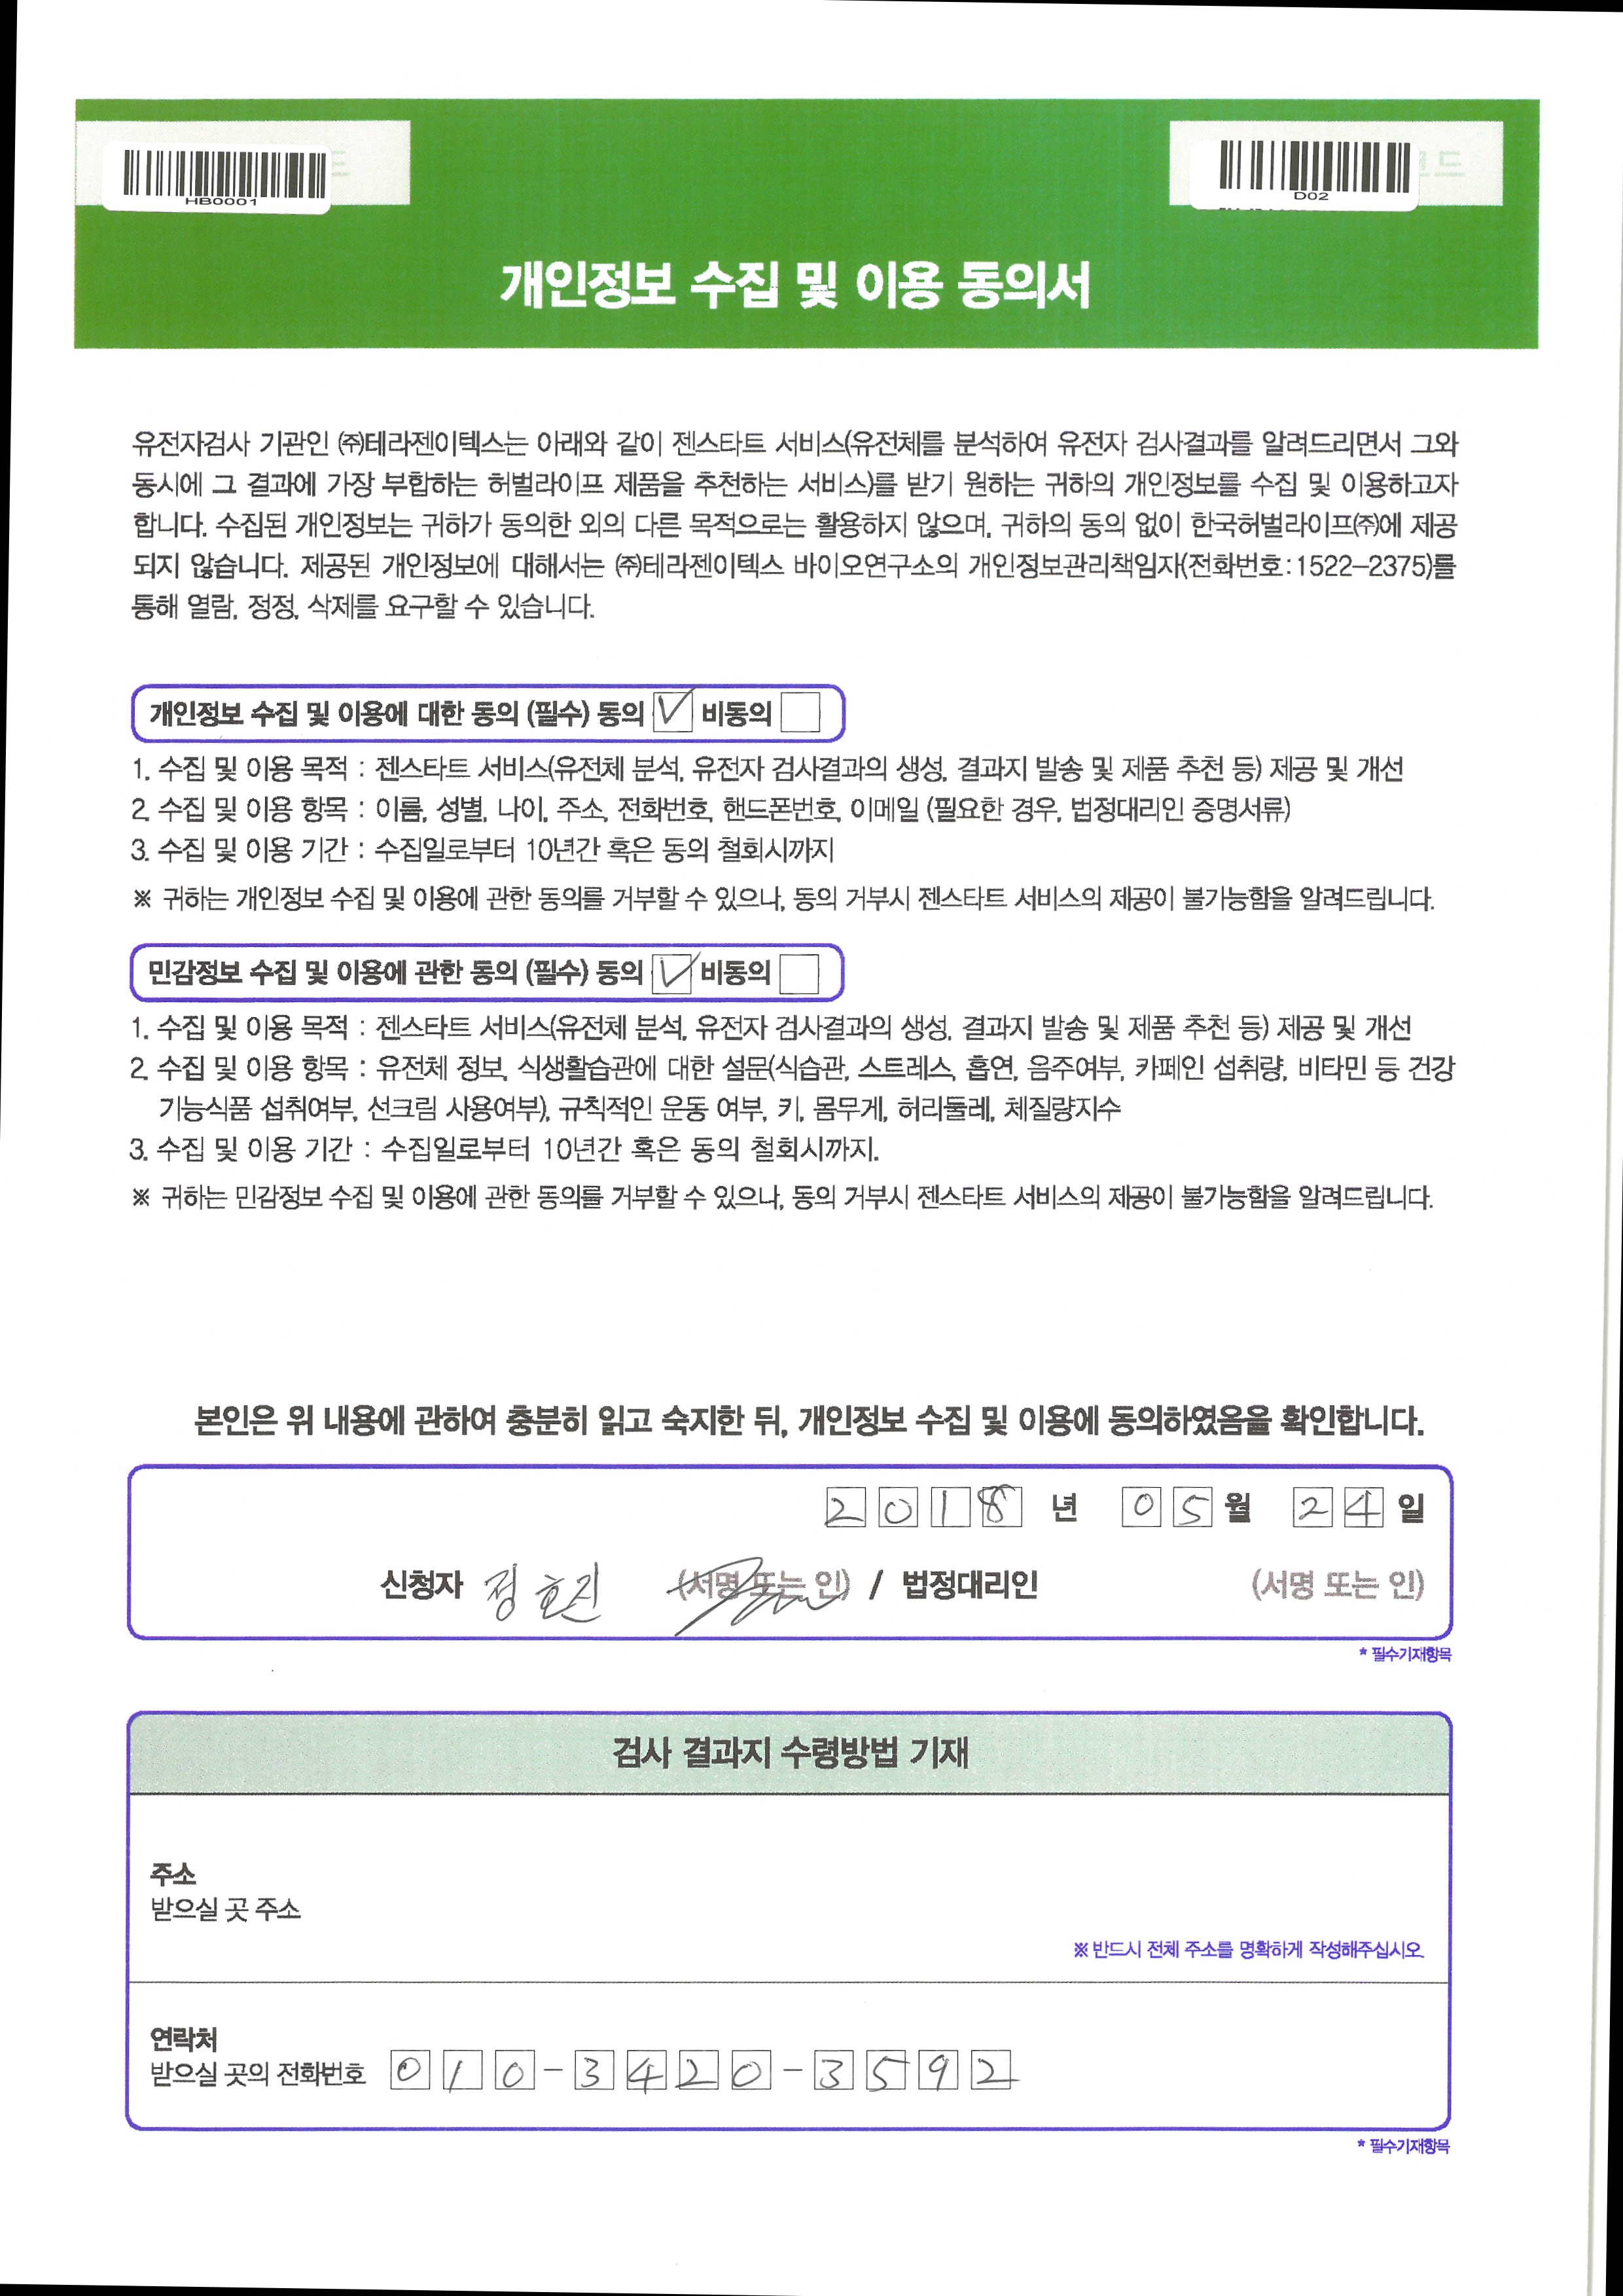 HB0001
D02
개인정보 수집 및 이용 동의서
유전자검사 기관인 ㈜테라젠이텍스는 아래와 같이 젠스타트 서비스(유전체를 분석하여 유전자 검사결과를 알려드리면서 그와
동시에 그 결과에 가장 부합하는 허벌라이프 제품을 추천하는 서비스)를 받기 원하는 귀하의 개인정보를 수집 및 이용하고자
합니다. 수집된 개인정보는 귀하가 동의한 외의 다른 목적으로는 활용하지 않으며, 귀하의 동의 없이 한국허벌라이프㈜에 제공
되지 않습니다. 제공된 개인정보에 대해서는 ㈜테라젠이텍스 바이오연구소의 개인정보관리책임자(전화번호:1522-2375)를
통해 열람, 정정, 삭제를 요구할 수 있습니다.
개인정보 수집 및 이용에 대한 동의 (필수) 동의 ✓ 비동의
1. 수집 및 이용 목적 : 젠스타트 서비스(유전체 분석, 유전자 검사결과의 생성, 결과지 발송 및 제품 추천 등) 제공 및 개선
2. 수집 및 이용 항목 : 이름, 성별, 나이, 주소, 전화번호, 핸드폰번호, 이메일 (필요한 경우, 법정대리인 증명서류)
3. 수집 및 이용 기간 : 수집일로부터 10년간 혹은 동의 철회시까지
※ 귀하는 개인정보 수집 및 이용에 관한 동의를 거부할 수 있으나, 동의 거부시 젠스타트 서비스의 제공이 불가능함을 알려드립니다.
민감정보 수집 및 이용에 관한 동의 (필수) 동의 ✓ 비동의
1. 수집 및 이용 목적 : 젠스타트 서비스(유전체 분석, 유전자 검사결과의 생성, 결과지 발송 및 제품 추천 등) 제공 및 개선
2. 수집 및 이용 항목 : 유전체 정보, 식생활습관에 대한 설문(식습관, 스트레스, 흡연, 음주여부, 카페인 섭취량, 비타민 등 건강
기능식품 섭취여부, 선크림 사용여부), 규칙적인 운동 여부, 키, 몸무게, 허리둘레, 체질량지수
3. 수집 및 이용 기간 : 수집일로부터 10년간 혹은 동의 철회시까지.
※ 귀하는 민감정보 수집 및 이용에 관한 동의를 거부할 수 있으나, 동의 거부시 젠스타트 서비스의 제공이 불가능함을 알려드립니다.
본인은 위 내용에 관하여 충분히 읽고 숙지한 뒤, 개인정보 수집 및 이용에 동의하였음을 확인합니다.
2018 년 05 월 24 일
신청자 정호진 (서명 또는 인) / 법정대리인 (서명 또는 인)
* 필수기재항목
검사 결과지 수령방법 기재
주소
받으실 곳 주소
※ 반드시 전체 주소를 명확하게 작성해주십시오.
연락처
받으실 곳의 전화번호 010-3420-3592
* 필수기재항목